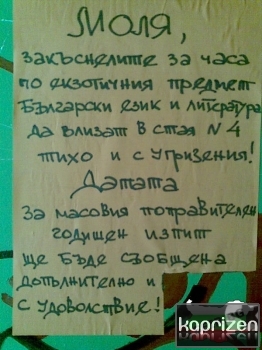 Моля,
закъснелите за часа
по екзотичния предмет
Български език и литература
да влизат в стая N 4
тихо и с угризения!
Датата
За масовия поправителен
годишен изпит
ще бъде съобщена
допълнително и
с удоволствие!
kaprizen